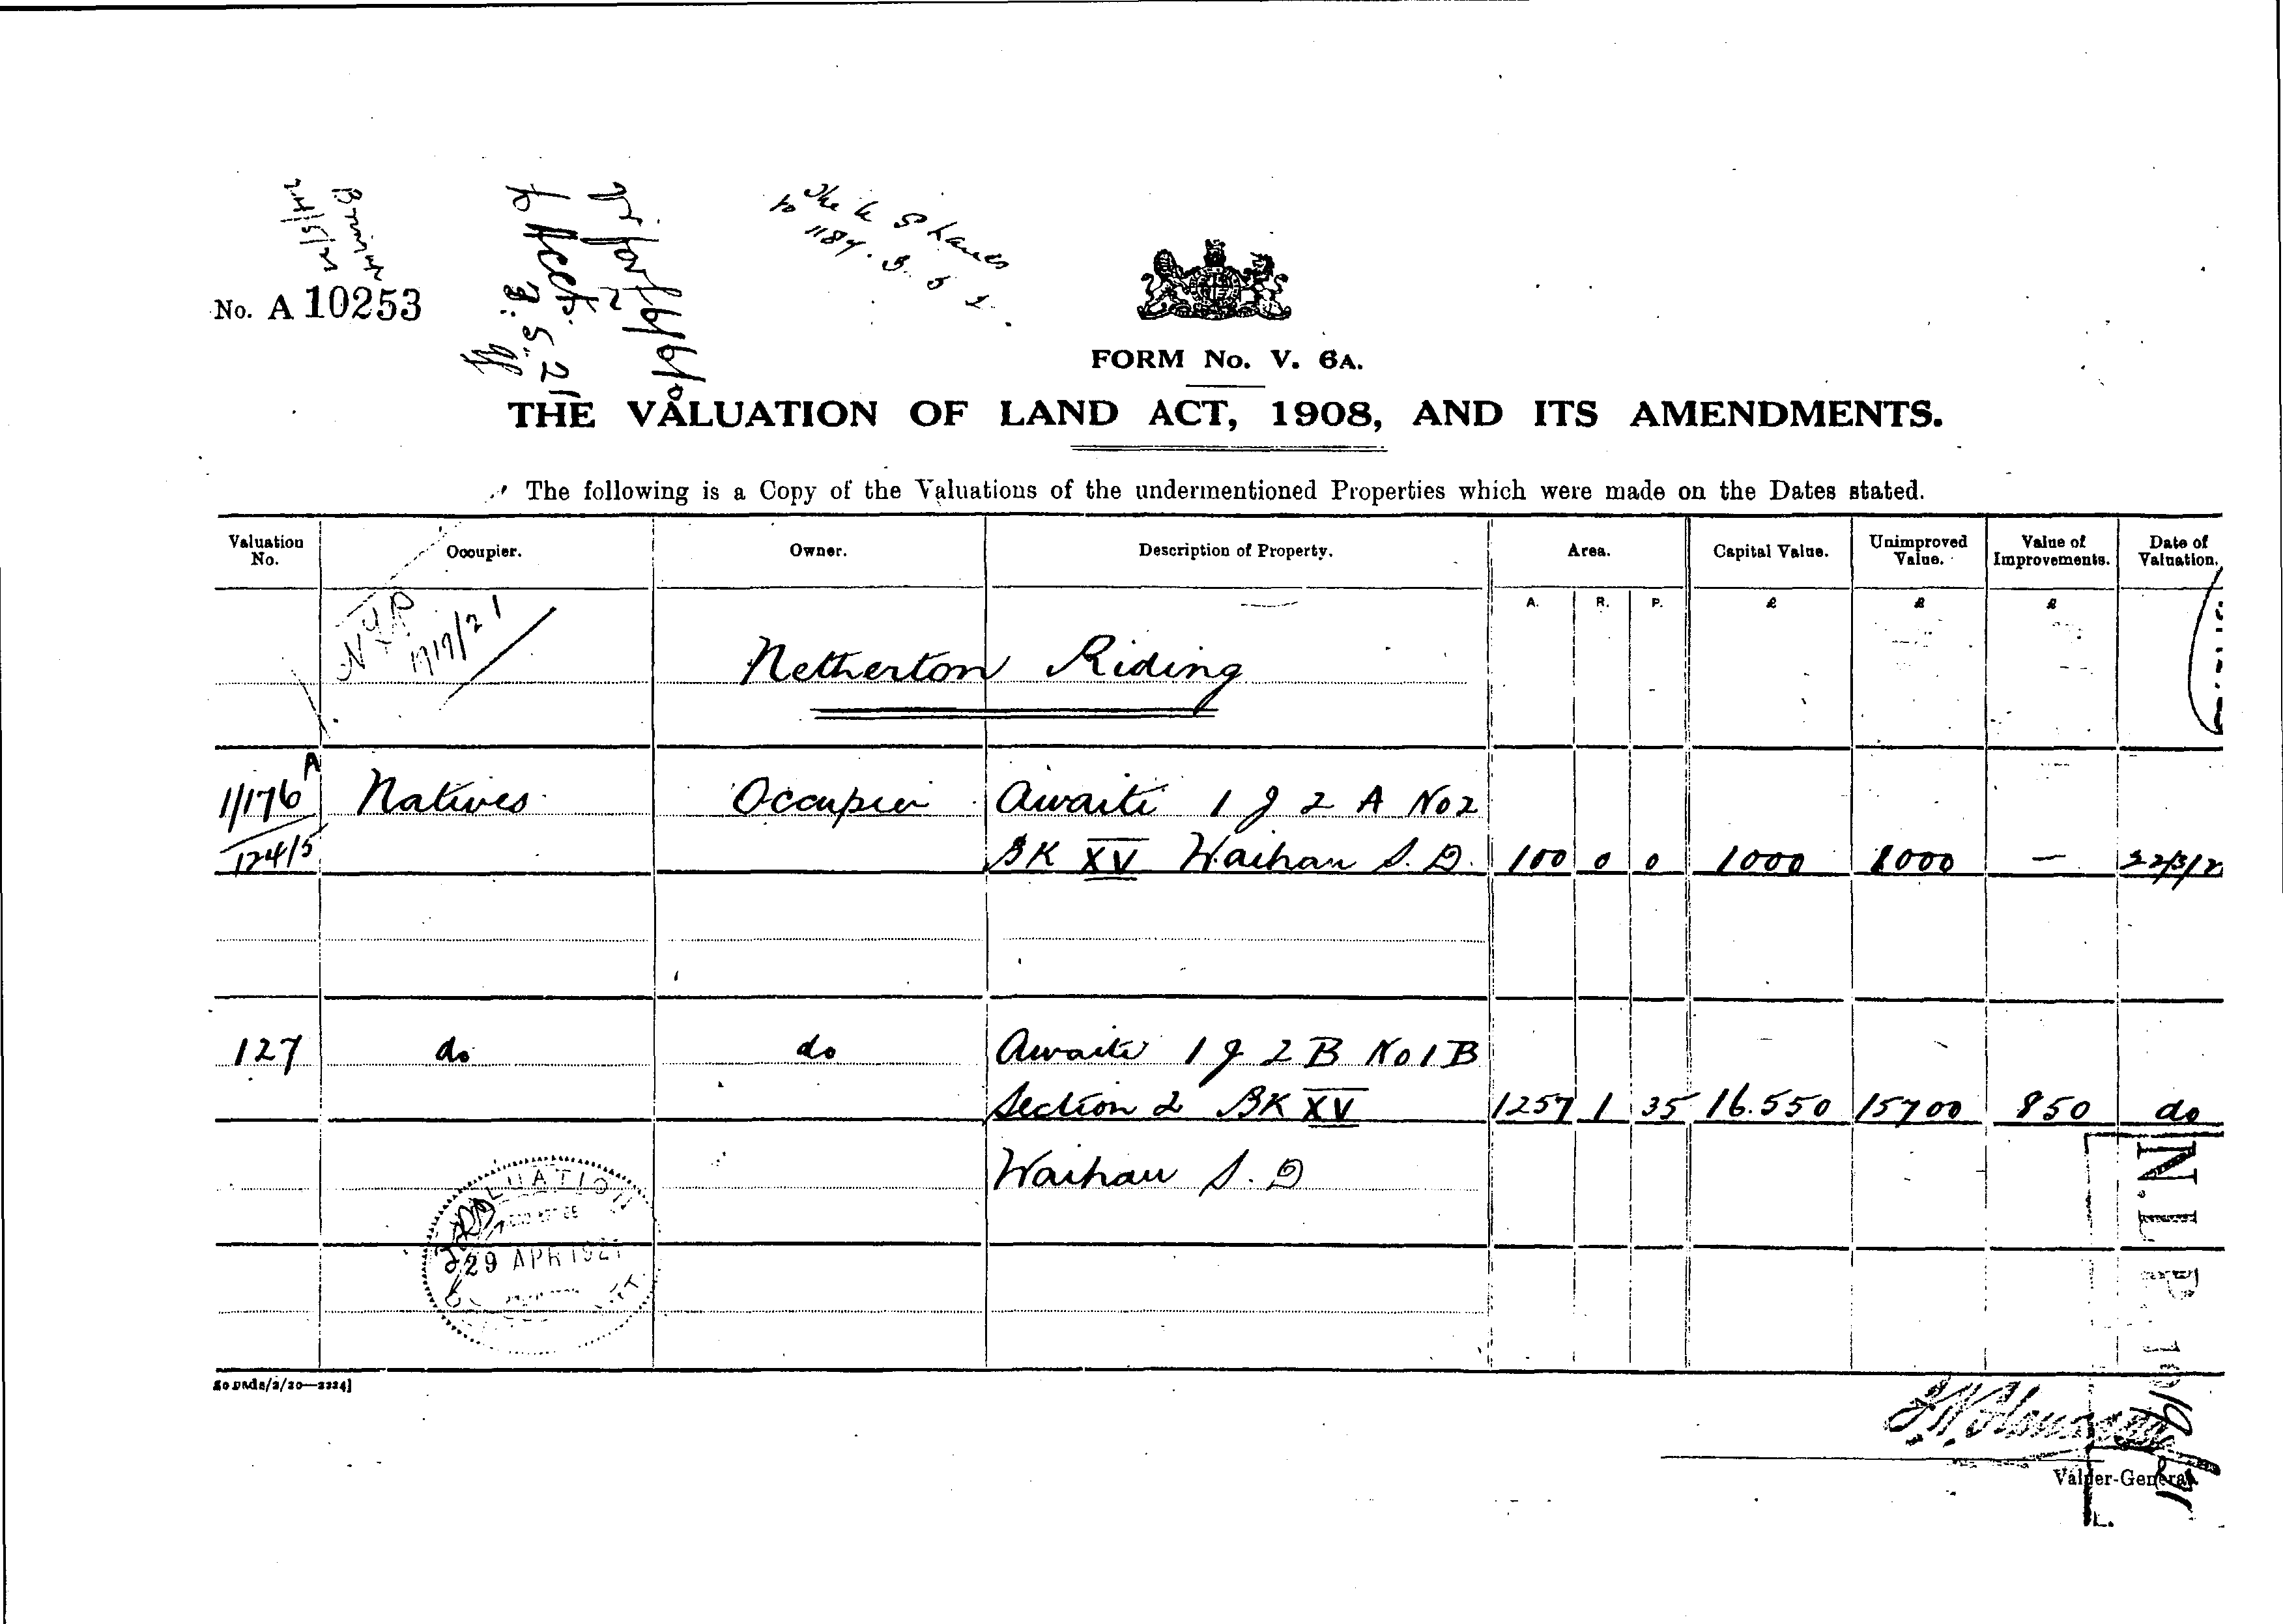 No. A 10253
FORM No. V. 6A.
THE VALUATION OF LAND ACT, 1908, AND ITS AMENDMENTS.
The following is a Copy of the Valuations of the undermentioned Properties which were made on the Dates stated.
Valuation No. Occupier. Owner. Description of Property. Area. Capital Value. Unimproved Value. Value of Improvements. Date of Valuation.
A. R. P. £ £ £
Netherton Riding
A
1/176 Natives Occupier Awaiti 1 & 2 A No 2
124/5 BK XV Waihau S.D. 100 0 0 1000 1000 — 22/3/2
127 do do Awaiti 1 & 2 B No 1 B
Section 2 BK XV 1257 1 35 16.550 15700 850 do
Waihau S.D
VALUATION
29 APR 1921
Valuer-General.